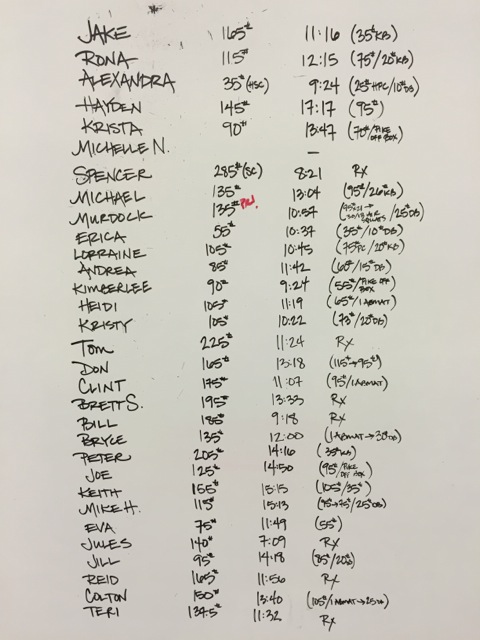 JAKE 165# 11:16 (35#KB)
RONA 115# 12:15 (75#/20#KB)
ALEXANDRA 35#(HSC) 9:24 (25#HPC/10#DB)
HAYDEN 145# 17:17 (95#)
KRISTA 90# 13:47 (70#/PIKE OFF BOX)
MICHELLE N. –
SPENCER 285#(SC) 8:21 RX
MICHAEL 135# 13:04 (95#/26#KB)
MURDOCK 135# PR! 10:57 /25#DB)
ERICA 55# 10:37 (35#/10#DB)
LORRAINE 105# 10:45 (75#PC/20#KB)
ANDREA 85# 11:42 (60#/15#DB)
KIMBERLEE 90# 9:24 (55#/PIKE OFF BOX)
HEIDI 105# 11:19 (65#/1 ABMAT)
KRISTY 105# 10:22 (73#/20#DB)
TOM 225# 11:24 RX
DON 165# 13:18 (115#→95#)
CLINT 175# 11:07 (95#/1ABMAT)
BRETT S. 195# 13:33 RX
BILL 185# 9:18 RX
BRYCE 135# 12:00 (1 ABMAT→30#DB)
PETER 205# 14:16 (35#KB)
JOE 125# 14:50 (95#/PIKE OFF BOX)
KEITH 155# 15:15 (105#/35#)
MIKE H. 115# 15:13 (95→75#/25#DB)
EVA 75# 11:49 (55#)
JULES 140# 7:09 RX
JILL 95# 14:18 (85#/20#)
REID 165# 11:56 RX
COLTON 150# 13:40 (105#/1 ABMAT→25DB)
TERI 134.5# 11:32 RX